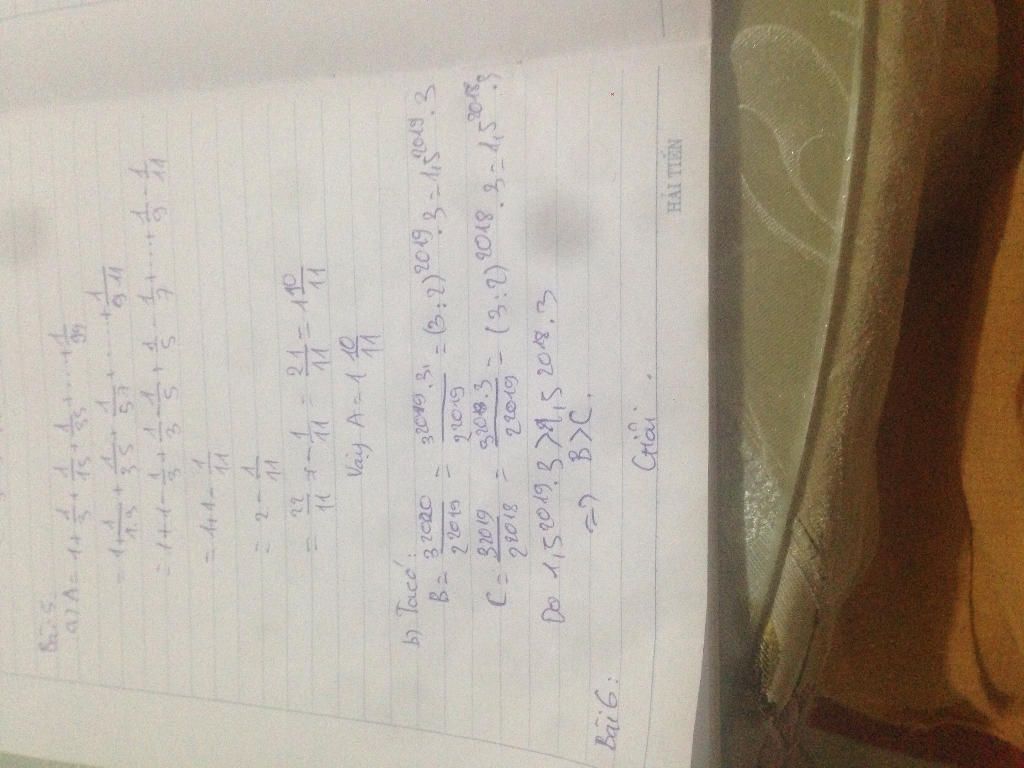 Bài 5.
a) A = 1 + 1/3 + 1/15 + 1/35 + ..... + 1/99
= 1 + 1/1.3 + 1/3.5 + 1/5.7 + ..... + 1/9.11
= 1 + 1 - 1/3 + 1/3 - 1/5 + 1/5 - 1/7 + ..... + 1/9 - 1/11
= 1 + 1 - 1/11
= 2 - 1/11
= 22/11 - 1/11 = 21/11 = 1 10/11
Vậy A = 1 10/11
b) Ta có:
B = 3^2020/2^2019 = 3^2019.3/2^2019 = (3:2)^2019.3 = 1,5^2019.3
C = 3^2019/2^2018 = 3^2018.3/2^2019 = (3:2)^2018.3 = 1,5^2018.3
Do 1,5^2019.3 > 1,5^2018.3
=> B > C.
Bài 6:
Giải
HẢI TIẾN